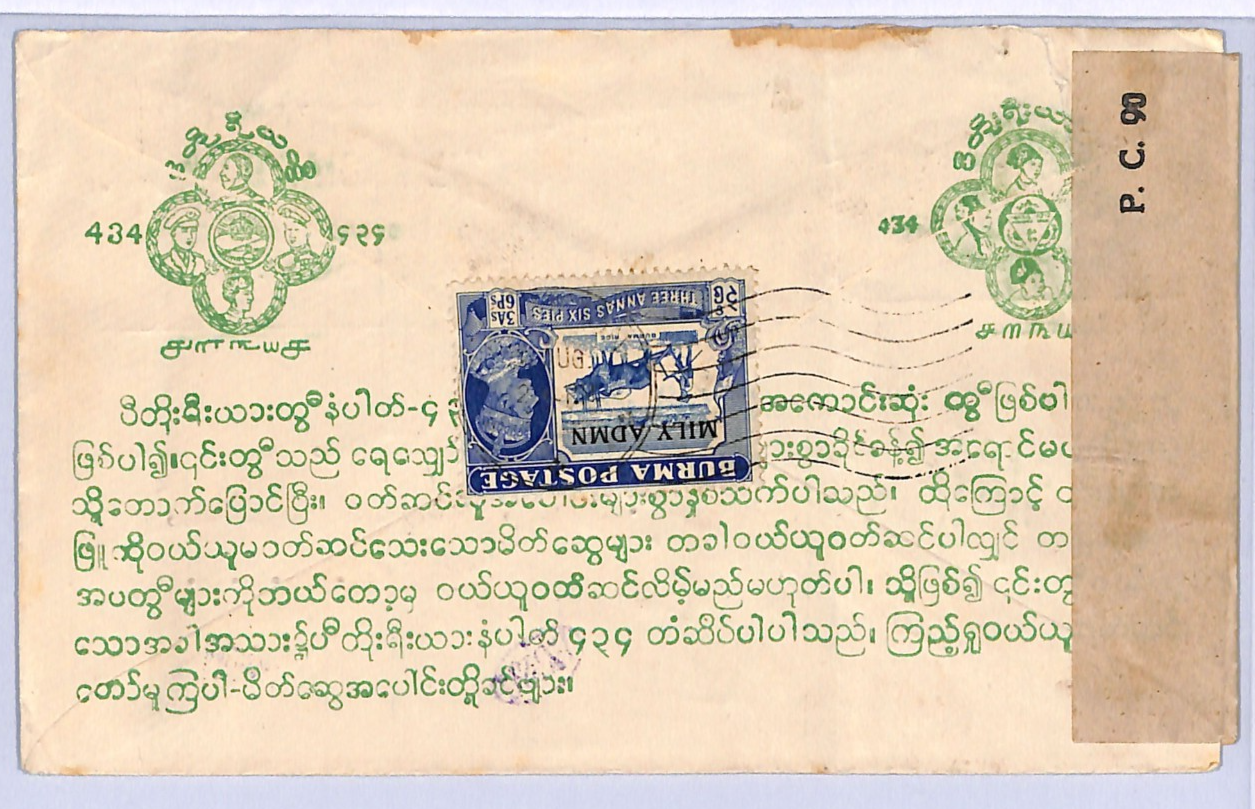 434 ၄၃၄
434
P. C. 90
3AS 6PS
THREE ANNAS SIX PIES
BURMA RICE
UG
MILY ADMN
BURMA POSTAGE
ပီတိုးရီးယားတွီနံပါတ်-၄၃ အကောင်းဆုံး တွီဖြစ်ပါ
ဖြစ်ပါ၍၊၎င်းတွီသည် ရေလျှော် များစွာခိုင်ခန့်၍ အရောင်မ
သို့တောက်ပြောင်ပြီး၊ ဝတ်ဆင် များစွာနှစ်သက်ပါသည်၊ ထိုကြောင့်
ဖြူကိုဝယ်ယူမဝတ်ဆင်သေးသောမိတ်ဆွေများ တခါဝယ်ယူဝတ်ဆင်ပါလျှင် တ
အပတွီများကိုဘယ်တော့မှ ဝယ်ယူဝတ်ဆင်လိမ့်မည်မဟုတ်ပါ၊ သို့ဖြစ်၍ ၎င်းတွ
သောအခါအသား၌ပီတိုးရီးယားနံပါတ် ၄၃၄ တံဆိပ်ပါပါသည်၊ ကြည့်ရှုဝယ်ယူ
တော်မူကြပါ-မိတ်ဆွေအပေါင်းတို့ခင်ဗျား၊